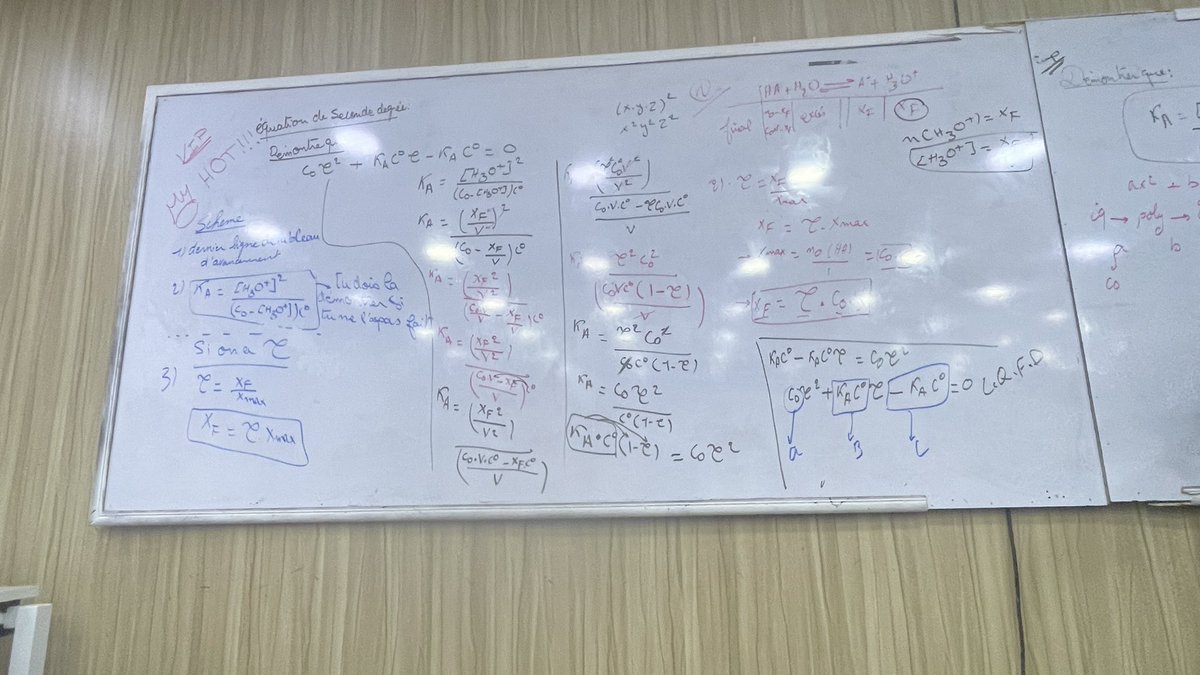 V-I-P
HOT!!!
équation de Seconde degrée.
Démontre q
C₀τ² + K_A C° τ - K_A C° = 0
Schema
1) dernier ligne tableau
d'avancement
2) K_A = [H₃O⁺]² / (C₀ - [H₃O⁺])C°
Tu dois la
démontrer si
tu ne l'a pas fait
Si on a τ
3) τ = x_F / x_max
X_F = τ · x_max
K_A = [H₃O⁺]² / (C₀ - [H₃O⁺])C°
K_A = (x_F / V)² / (C₀ - x_F / V)C°
K_A = (x_F² / V²)
K_A = (x_F² / V²)
K_A = (x_F² / V²) / (C₀·V·C° - x_F C° / V)
(x·y·z)²
x²y²z²
C₀·V·C° - τC₀·V·C°
V
τ² C₀²
(C₀ C° (1-τ))
K_A = C₀² / C₀C° (1-τ)
K_A = C₀τ² / C°(1-τ)
K_A·C° (1-τ) = C₀τ²
HA + H₂O ⇌ A⁻ + H₃O⁺
final excès x_F x_F
n(H₃O⁺) = x_F
[H₃O⁺] = x_F
2) · τ = x_F / x_max
x_F = τ · x_max
→ x_max = n₀(HA) / 1 = C₀
→ x_F = τ · C₀
K_A C° - K_A C° τ = C₀τ²
C₀τ² + K_A C° τ - K_A C° = 0 C.Q.F.D
a B C
Démontrer que:
K_A =
ax² + b
poly
a b
C₀